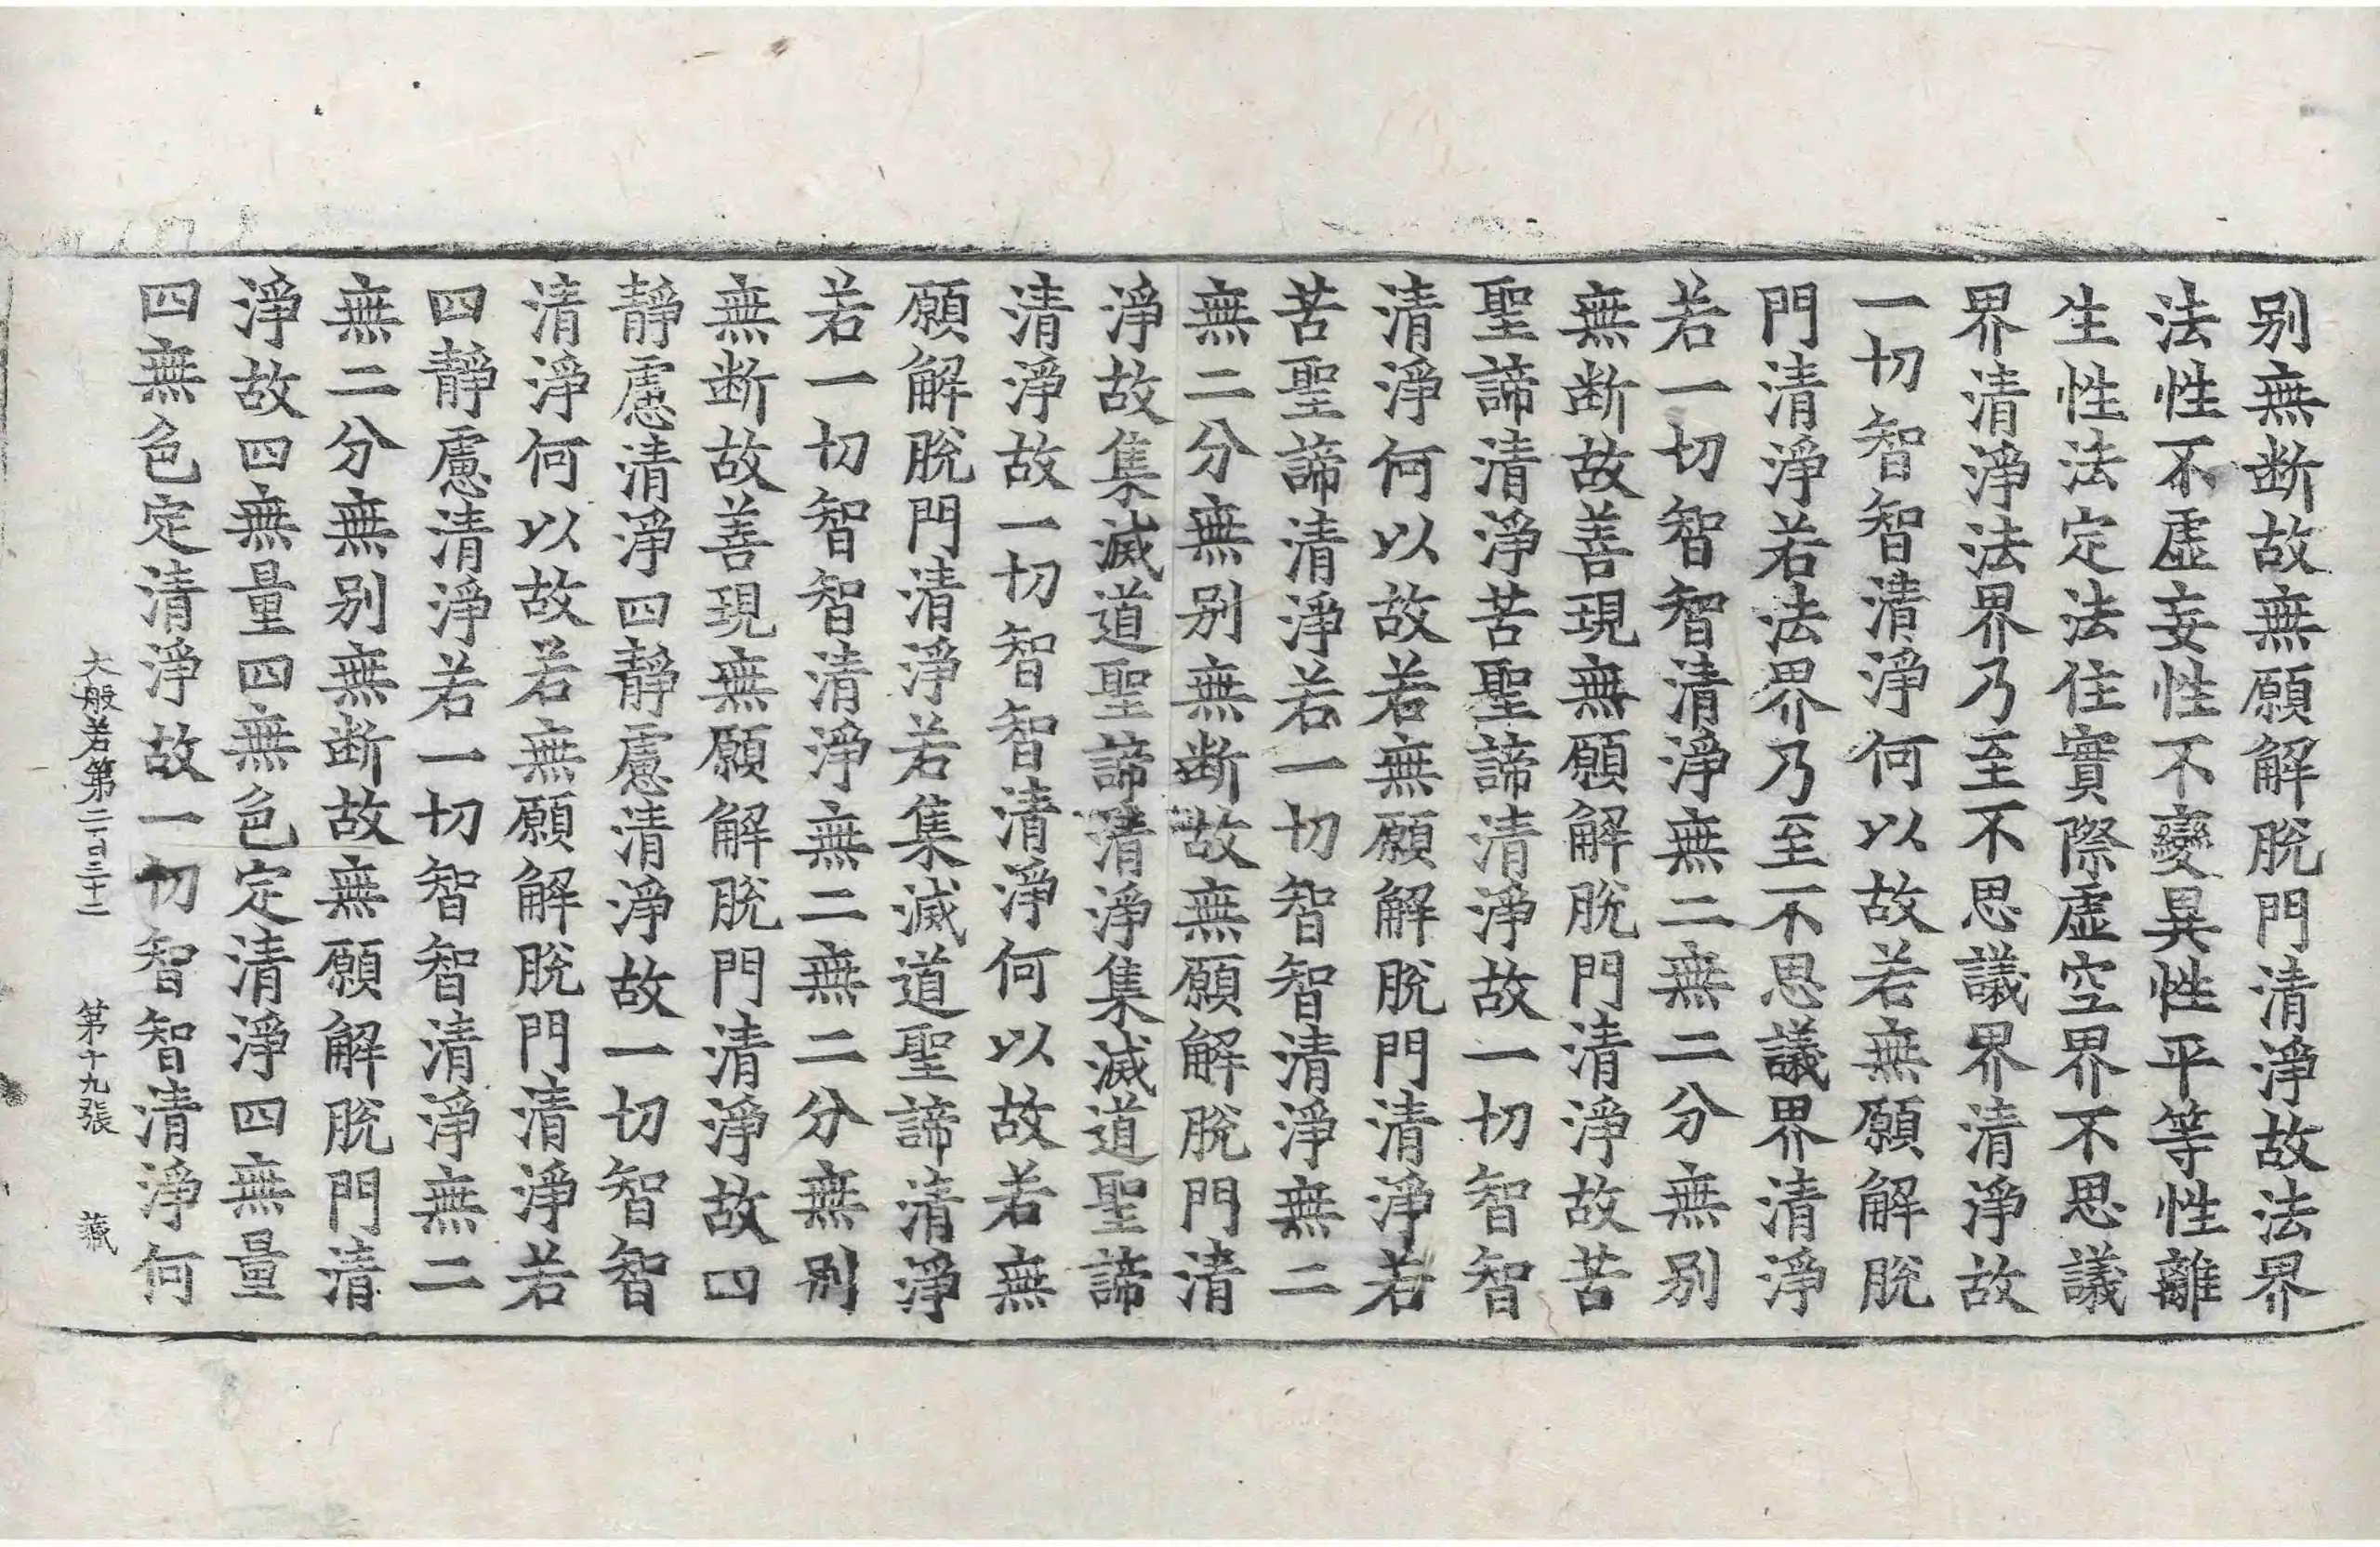 别無断故無願解脫門清淨故法界
法性不虛妄性不變異性平等性離
生性法定法住實際虛空界不思議
界清淨法界乃至不思議界清淨故
一切智智清淨何以故若無願解脫
門清淨若法界乃至不思議界清淨
若一切智智清淨無二無二分無别
無断故善現無願解脫門清淨故苦
聖諦清淨苦聖諦清淨故一切智智
清淨何以故若無願解脫門清淨若
苦聖諦清淨若一切智智清淨無二
無二分無别無断故無願解脫門清
淨故集滅道聖諦清淨集滅道聖諦
清淨故一切智智清淨何以故若無
願解脫門清淨若集滅道聖諦清淨
若一切智智清淨無二無二分無别
無断故善現無願解脫門清淨故四
靜慮清淨四靜慮清淨故一切智智
清淨何以故若無願解脫門清淨若
四靜慮清淨若一切智智清淨無二
無二分無别無断故無願解脫門清
淨故四無量四無色定清淨四無量
四無色定清淨故一切智智清淨何
大般若第二百三十二 第十九張 藏